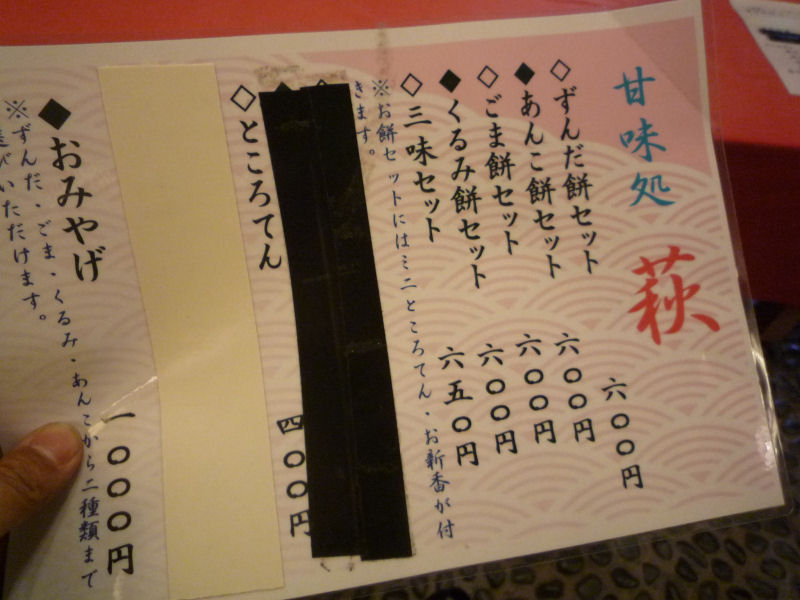 甘味処 萩
◇ずんだ餅セット 六〇〇円
◆あんこ餅セット 六〇〇円
◇ごま餅セット 六〇〇円
◆くるみ餅セット 六〇〇円
◇三味セット 六五〇円
※お餅セットにはミニところてん・お新香が付
きます。
◇ところてん 四〇〇円
◆おみやげ 一〇〇〇円
※ずんだ・ごま・くるみ・あんこから二種類まで
選びいただけます。